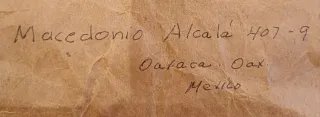 Macedonio Alcalá 407-9
Oaxaca Oax
Mexico